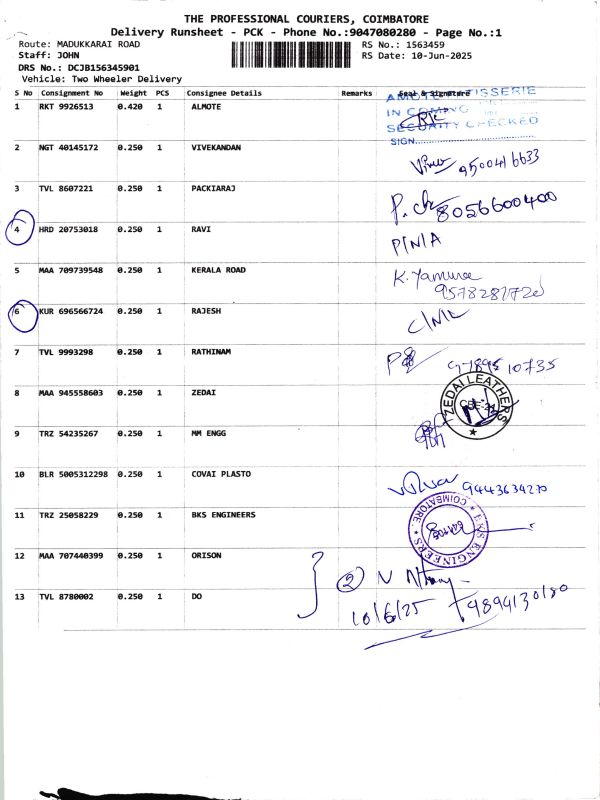 THE PROFESSIONAL COURIERS, COIMBATORE
Delivery Runsheet - PCK - Phone No.:9047080280 - Page No.:1
Route: MADUKKARAI ROAD RS No.: 1563459
Staff: JOHN RS Date: 10-Jun-2025
DRS No.: DCJB156345901
Vehicle: Two Wheeler Delivery
S No Consignment No Weight PCS Consignee Details Remarks Seal & Signature
1 RKT 9926513 0.420 1 ALMOTE
IN COMING
SECURITY CHECKED
SIGN
2 NGT 40145172 0.250 1 VIVEKANDAN
3 TVL 8607221 0.250 1 PACKIARAJ
8056600400
4 HRD 20753018 0.250 1 RAVI
P/N/A
5 MAA 709739548 0.250 1 KERALA ROAD
6 KUR 696566724 0.250 1 RAJESH
7 TVL 9993298 0.250 1 RATHINAM
8 MAA 945558603 0.250 1 ZEDAI
ZEDAI LEATHERS
9 TRZ 54235267 0.250 1 MM ENGG
10 BLR 5005312298 0.250 1 COVAI PLASTO
9443634270
11 TRZ 25058229 0.250 1 BKS ENGINEERS
BKS ENGINEERS COIMBATORE
12 MAA 707440399 0.250 1 ORISON
2
13 TVL 8780002 0.250 1 DO
10/6/25 9894130180